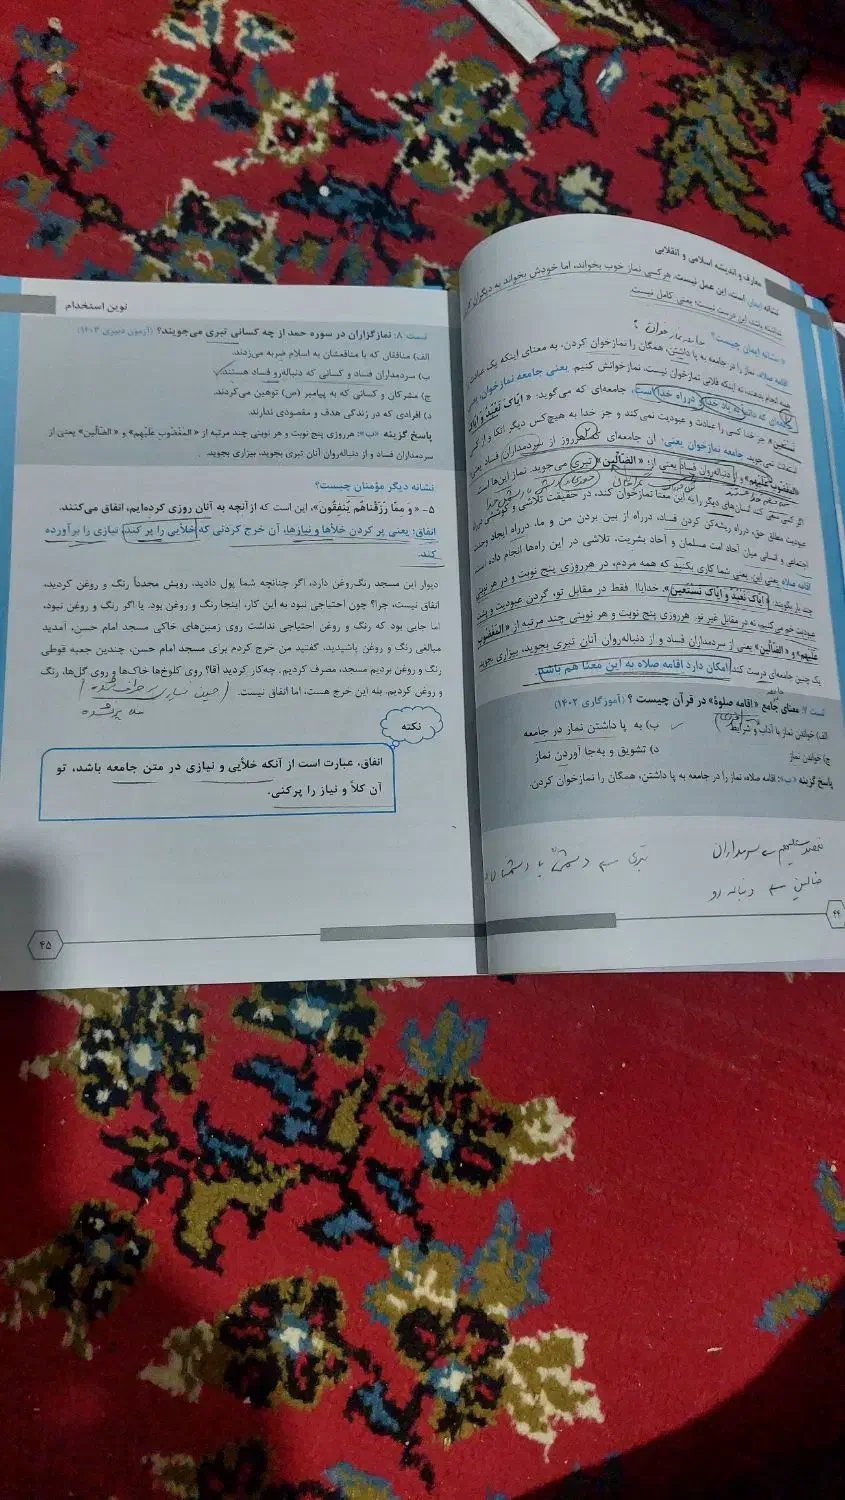 معارف و اندیشه اسلامی و انقلابی
نشانه ایمان است، این عمل نیست. هرکسی نماز خوب بخواند، اما خودش بخواند به دیگران کاری
نداشته باشد، این درست نیست؛ یعنی کامل نیست.
نشانه ایمان چیست؟ جامعه نمازخوان ؟
اقامه صلاه، نماز را در جامعه به پا داشتن، همگان را نمازخوان کردن، به معنای اینکه یک عبادت
انجام بدهند، نه اینکه فلانی نمازخوان نیست، نمازخوانش کنیم. یعنی جامعه نمازخوان، یعنی
جامعه‌ای که دائم به یاد خدا و درراه خدا است، جامعه‌ای که می‌گوید: « ایّاکَ نَعْبُدُ وَ ایّاکَ
نَسْتَعین» جز خدا کسی را عبادت و عبودیت نمی کند و جز خدا به هیچ‌کس دیگر اتکا و از کس
استعانت نمی‌جوید. جامعه نمازخوان یعنی: آن جامعه‌ای که هرروز از سردمداران فساد یعنی
«المَغْضُوبِ عَلَیْهِم» و از دنباله‌روان فساد یعنی از؛ «الضالّین» تبری می‌جوید. نماز این‌ها است.
اگر کسی سعی کند انسان‌های دیگر را به این معنا نمازخوان کند، در حقیقت تلاشی و کوششی درراه
عبودیت مطلق حق، درراه ریشه‌کن کردن فساد، درراه از بین بردن من و ما، درراه ایجاد وحدت
اجتماعی و انسانی میان آحاد امت مسلمان و آحاد بشریت، تلاشی در این راه‌ها انجام داده است.
اقامه صلاه یعنی این. یعنی شما کاری بکنید که همه مردم، در هرروزی پنج نوبت و در هر نوبتی
چند بار بگویند: « ایّاکَ نَعْبُدُ وَ ایّاکَ نَسْتَعین». خدایا! فقط در مقابل تو، گردن عبودیت و پشت
عبودیت خم می‌کنیم، نه در مقابل غیر تو. هرروزی پنج نوبت و هر نوبتی چند مرتبه از «المَغْضُوبِ
عَلَیْهِم» و « الضالّین» یعنی از سردمداران فساد و از دنباله‌روان آنان تبری بجوید، بیزاری بجوید.
یک چنین جامعه‌ای درست کند. امکان دارد اقامه صلاه به این معنا هم باشد.
تست ۷: معنای جامع «اقامه صلوة» در قرآن چیست ؟ (آموزگاری ۱۴۰۲)
الف) خواندن نماز با آداب و شرایط
ب) به پا داشتن نماز در جامعه
ج) خواندن نماز
د) تشویق و به‌جا آوردن نماز
پاسخ گزینه «ب»: اقامه صلاه، نماز را در جامعه به پا داشتن، همگان را نمازخوان کردن.
سردمداران
تبری
ضالین دنباله رو
۴۴
نوین استخدام
تست ۸: نمازگزاران در سوره حمد از چه کسانی تبری می‌جویند؟ (آزمون دبیری ۱۴۰۳)
الف) منافقان که با منافعشان به اسلام ضربه می‌زدند.
ب) سردمداران فساد و کسانی که دنباله‌رو فساد هستند.
ج) مشرکان و کسانی که به پیامبر (ص) توهین می‌کردند.
د) افرادی که در زندگی هدف و مقصودی ندارند.
پاسخ گزینه «ب»: هرروزی پنج نوبت و هر نوبتی چند مرتبه از «المَغْضُوبِ عَلَیْهِم» و «الضالّین» یعنی از
سردمداران فساد و از دنباله‌روان آنان تبری بجوید، بیزاری بجوید.
نشانه دیگر مؤمنان چیست؟
۵- « و ممّا رَزَقْناهُم یُنْفِقُون»، این است که ازآنچه به آنان روزی کرده‌ایم، انفاق می‌کنند.
انفاق: یعنی پر کردن خلأها و نیازها، آن خرج کردنی که خلأیی را پر کند، نیازی را برآورده
کند.
دیوار این مسجد رنگ‌روغن دارد، اگر چنانچه شما پول دادید، رویش مجدداً رنگ و روغن کردید،
انفاق نیست، چرا؟ چون احتیاجی نبود به این کار، اینجا رنگ و روغن بود. یا اگر رنگ و روغن نبود،
اما جایی بود که رنگ و روغن احتیاجی نداشت روی زمین‌های خاکی مسجد امام حسن، آمدید
مبالغی رنگ و روغن پاشیدید، گفتید من خرج کردم برای مسجد امام حسن، چندین جعبه قوطی
رنگ و روغن بردیم مسجد، مصرف کردیم. چه‌کار کردید آقا؟ روی کلوخ‌ها خاک‌ها و روی گل‌ها، رنگ
و روغن کردیم. بنه این خرج هست، اما انفاق نیست.
نکته
انفاق، عبارت است از آنکه خلأیی و نیازی در متن جامعه باشد، تو
آن کلأ و نیاز را پرکنی.
۴۵